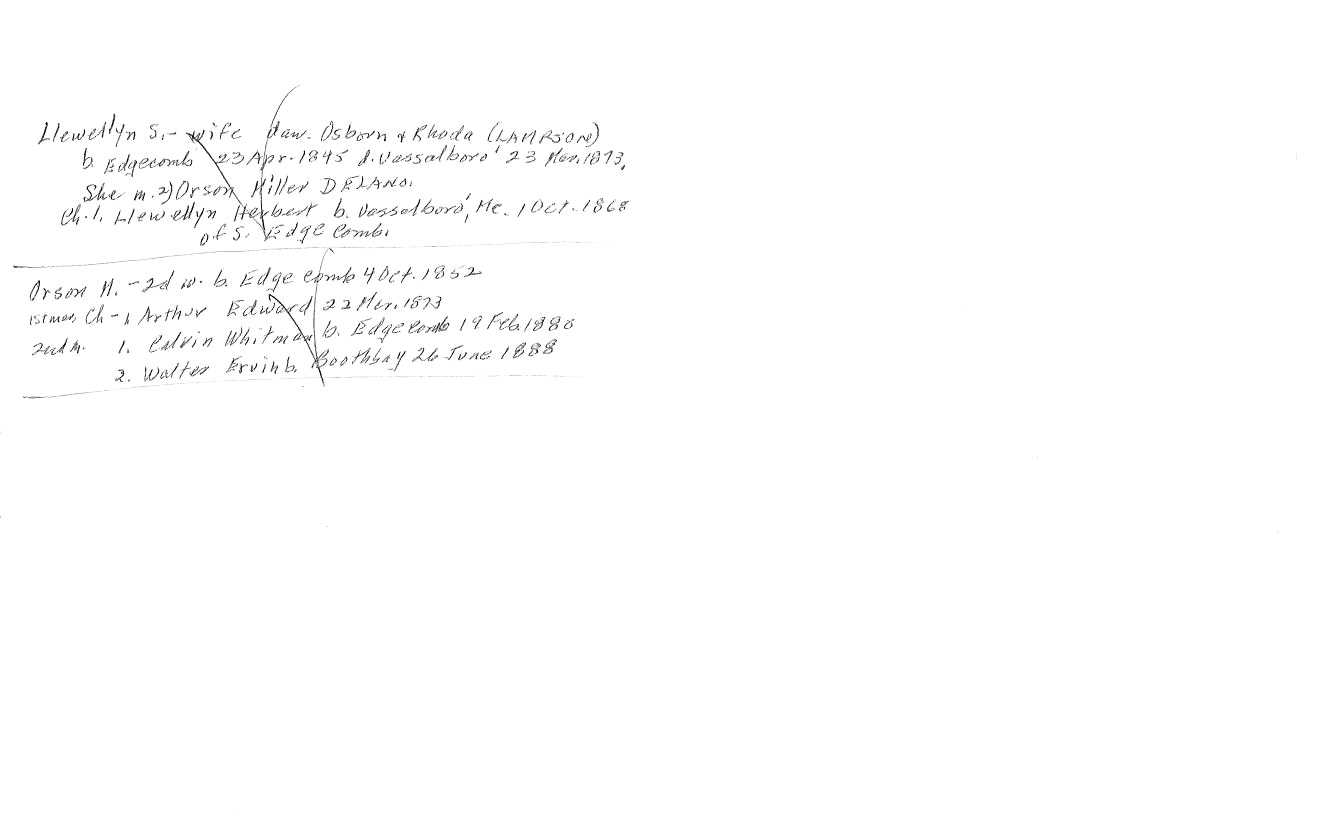 Llewellyn S. - wife daw. Osborn & Rhoda (LAMPSON)
b. Edgecomb 23 Apr. 1845 d. Vassalboro' 23 Mar. 1873,
She m. 2) Orson Miller DELANO.
Ch. 1. Llewellyn Herbert b. Vassalboro', Me. 1 Oct. 1868
of S. Edgecomb.
Orson M. - 2d w. b. Edgecomb 4 Oct. 1852
1st mar. Ch - 1 Arthur Edward 22 Mar. 1873
2nd m. 1. Calvin Whitman b. Edgecomb 19 Feb. 1880
2. Walter Ervin b. Boothbay 26 June 1888